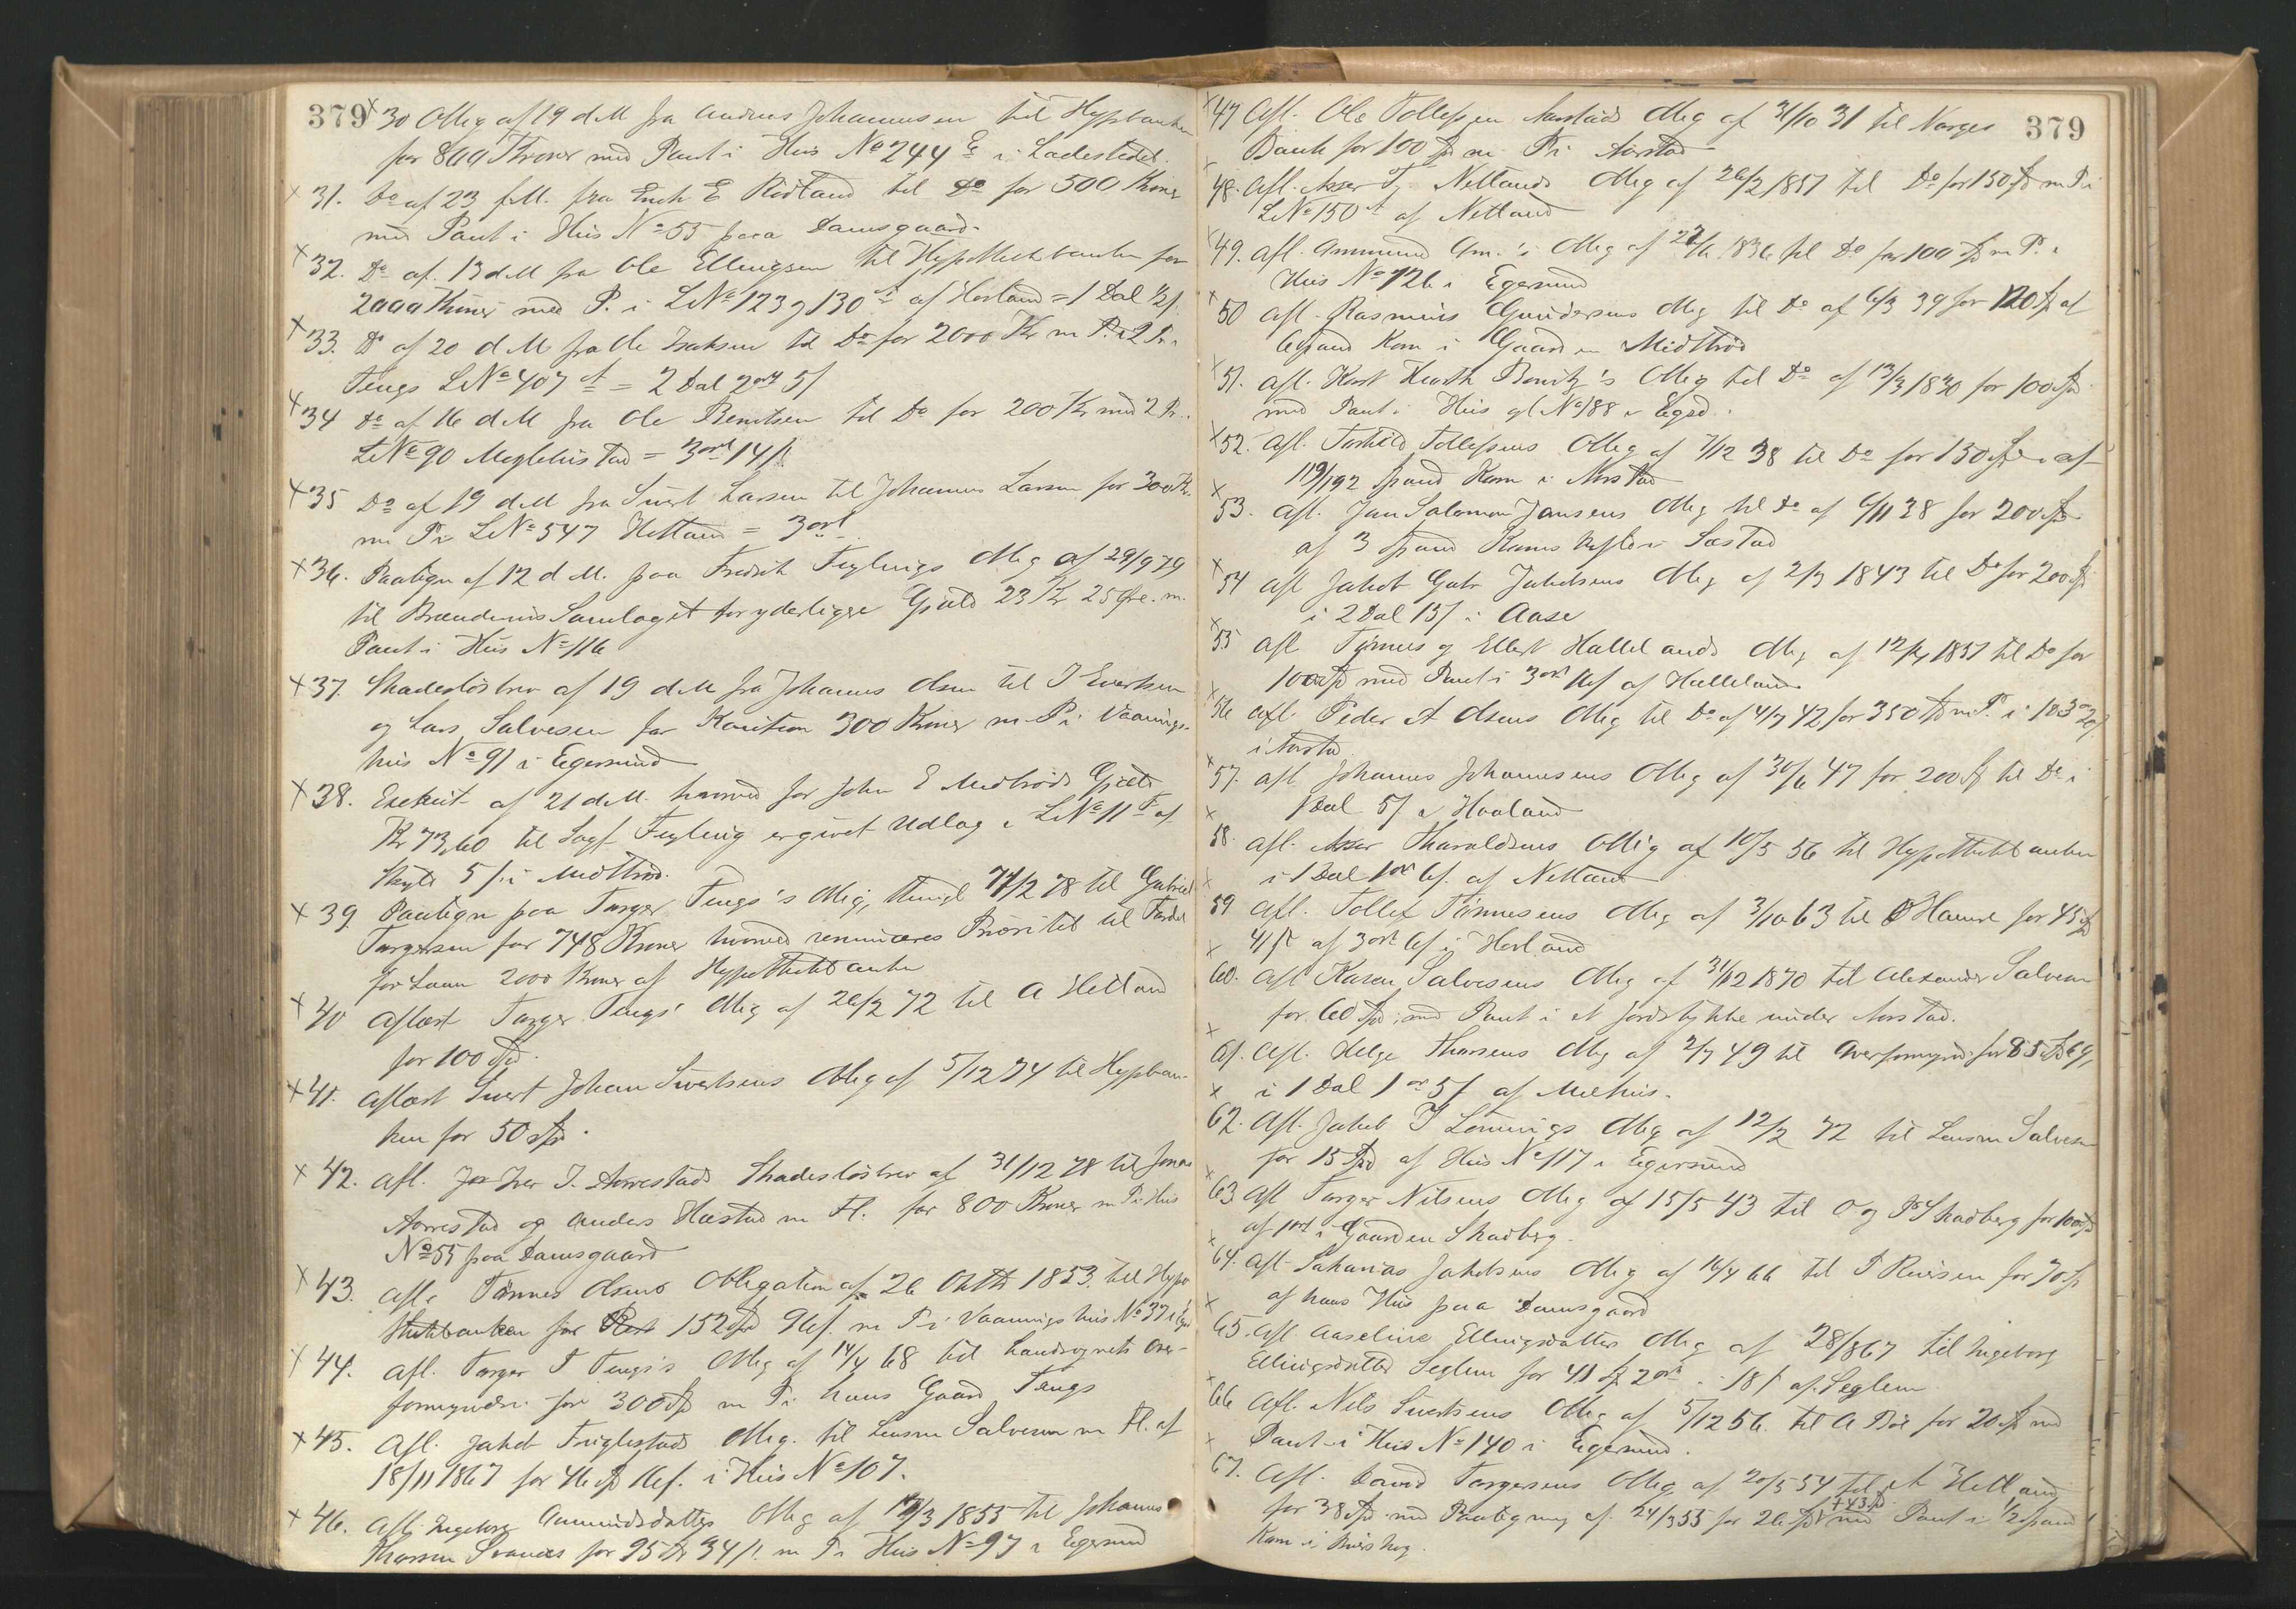 379
× 30 Oblig af 19 d M fra Andreas Johannesen til Hypbanken
for 800 Kroner med Pant i Hus No 244 E i Ladestedet.
× 31. Do af 23 f.M. fra Enok E Rødland til Do for 500 Kroner
med Pant i Hus No 55 paa Damsgaard.
× 32. Do af 13 d M fra Ole Ellingsen til Hypothekbanken for
2000 Kroner med P. i LNo 123 og 130 af Horland = 1 Dal
× 33. Do af 20 d M fra Ole Isaksen til Do for 2000 Kr m P. i 2 Pr.
Tengs LNo 407 A = 2 Dal 2 ort 5 ſ
× 34 Do af 16 d M fra Ole Berntsen til Do for 200 Kr med 2 Pr.
LNo 90 = 3 ort 14 ſ.
× 35 Do af 19 d M fra Sivert Larsen til Johannes Larsen for 300 Kr.
m P i LNo 547 Hetland = 3 ort
× 36. Paategn af 12 d M. paa Fredrik Fuglings Oblig af 29/9 79
til Brændevins Samlaget for yderligere Gjæld 23 Kr 25 Øre. m.
Pant i Hus No 116
× 37. Skadesløsbrev af 19 d M fra Johannes Olsen til I Evertsen
og Lars Salvesen for Kaution 300 Kroner m P i Vaanings-
hus No 91 i Egersund
× 38. Exekut. af 21 d M. hvorved for John E Midbrøds Gjæld
Kr 73,60 til Sagf Feyling er givet Udlæg i LNo 11 af
Skyld 5 ſ. i Midbrød.
× 39. Paategn paa Targer Tengs's Oblig, thingl 2/78 til Gabriel
Torgersen for 748 Kroner hvorved renunceres Prioritet til Fordel
for Laan 2000 Kroner af Hypothekbanken
× 40 Aflæst Targer Tengs' Oblig af 26/2 72 til A Hetland
for 100 Spd.
× 41. Aflæst Sivert Johan Sivertsens Oblig af 5/12 74 til Hypban-
ken for 50 Spd.
× 42. Afl. Iver I. Aarrestads Skadesløsbrev af 31/12 78 til Jonas
Aarrestad og Anders Hæstad m Fl. for 800 Kroner m P i Hus
No 55 paa Damsgaard
× 43. Afl. Tønnes Olsens Obligation af 26 Oktb 1853. til Hypo
thekbanken for Rest 152 Spd 96 ſ. m P i Vaaningshus No 37 i
× 44. Afl. Targer T Tengs's Oblig af 14/4 68 til Landsognets Over-
formynderi for 300 Spd m P i hans Gaard Tengs
× 45. Afl. Jakob Fuglestads Oblig. til Lensm Salvesen m Fl. af
18/11 1867 for 46 Spd 16 ſ. i Hus No 107.
× 46. Afl. Ingeborg Aanundsdatters Oblig af /3 1855 til Johannes
Thorsen Svanes for 95 Sp 34 ſ. m P i Hus No 97 i Egersund
379
× 47 Afl. Ole Tollefsen Aarstads Oblig af 31/10 31 til Norges
Bank for 100 Spd m. P i Aarstad
× 48. Afl. Asser T. Netlands Oblig af 26/2 1857 til Do for 150 Spd m P i
LNo 150 A af Netland
× 49. Afl. Ammund Am.'s Oblig af 1836 til Do for 100 Spd m P. i
Hus No 126 i Egersund
× 50 Afl. Rasmus Gundersens Oblig til Do af 6/3 39 for 120 Spd af
6 Spand Korn i Gaarden Midbrød
× 51. Afl. Bowitz's Oblig til Do af 13/3 1830 for 100 Spd.
med Pant i Hus gl No 188 i Egsd.
× 52. Afl. Torkild Tollefsens Oblig af 7/12 38 til Do for 150 Spd af
119/192 Spand Korn i Aarstad
× 53. Afl. Jan Salomon Jansens Oblig til Do af 6/11 38 for 200 Spd.
af 3 Spand Korns Hefte i Sæstad
× 54 Afl Jakob Gabr Jakobsens Oblig af 2/3 1843 til Do for 200 Spd
i 2 Dal 15 ſ i Aase
× 55 Afl Tønnes og Ellert Hallelands Oblig af 1857 til Do for
100 Spd med Pant i 3 ort 16 ſ af Halleland
× 56 Afl. Peder A Olsens Oblig til Do af 4/7 42 for 350 Spd m P. i
i Aarstad.
× 57. Afl. Johannes Johannesens Oblig af 30/6 47 for 200 Spd til Do i
1 Dal 5 ſ i Haaland
× 58. Afl. Asser Tharaldsens Oblig af 10/5 56 til Hypothekbanken
i 1 Dal 1 ort 6 ſ. af Netland
× 59 Afl. Tollef Tønnesens Oblig af 3/10 63 til O Hamre for 45 Spd
41 ſ af 3 ort 6 ſ i Horland
× 60. Afl Karen Salvesens Oblig af 31/12 1870 til Alexander Salvesen
for 60 Spd; med Pant i et Jordstykke under Aarstad.
× 61. Afl. Helge Thorsens Oblig af 2/7 49 til Overformynd. for 85 Spd
× i 1 Dal 1 ort 5 ſ af Mælhus.
62. Afl. Jakob I Lønnings Oblig af 12/2 72 til Lensm Salvesen
for 15 Spd af Hus No 117 i Egersund
× 63 Afl Targer Nilsens Oblig af 15/5 43 til O og P Skadberg for 100 Spd
af 1 ort i Gaarden Skadberg.
× 64. Afl Sakarias Jakobsens Oblig af 16/4 66 til P Reiersen for 70 Sp
af hans Hus paa Damsgaard
× 65. Afl Aaseline Ellingsdatters Oblig af 28/8 67 til Ingeborg
Ellingsdatter Seglem for 41 Sp 2 ort i 18 ſ af Seglem
× 66 Afl. Nils Sivertsens Oblig af 5/12 56. til A Bøe for 20 Spd med
Pant i Hus No 140 i Egersund.
× 67. Afl. David Torgersens Oblig af 20/5 54 til A Hetland
for 38 Spd med Paategning af 24/3 55 for 26 Spd + 43 Spd. med Pant i 1/2 Spand
Korn i